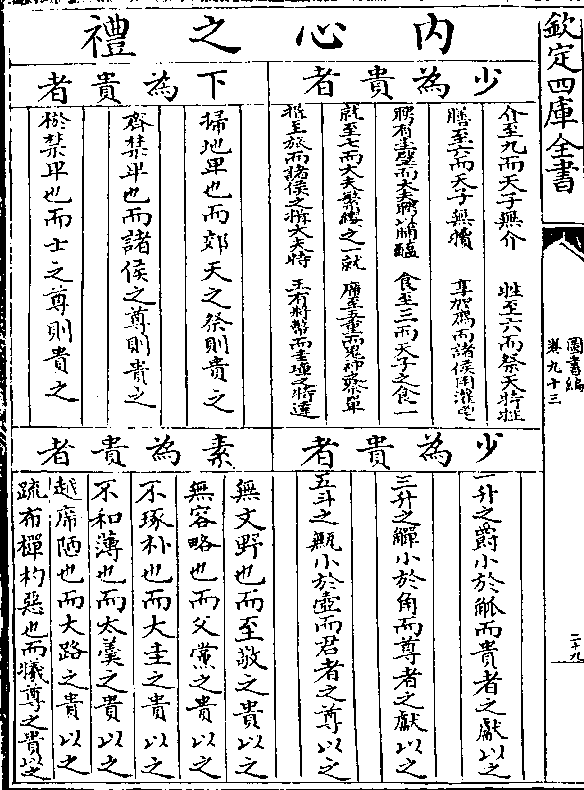 欽定四庫全書
圖書編
卷九十三
二十九
內心之禮
少為貴者
介至九而天子無介　牲至六而祭天特牲
膳至六而天子無犢　享加而諸侯用灌鬯
聘有圭璧而大夫聘以脯醢　食至三而天子之食一
就至七而大夫繁纓之一就　席至五重而鬼神祭單
揖至旅而諸侯之揖大夫特　玉有將幣而圭璋之特達
下為貴者
掃地卑也而郊天之祭則貴之
齊禁卑也而諸侯之尊則貴之
棜禁卑也而士之尊則貴之
少為貴者
一升之爵小於觚而貴者之獻以之
三升之觶小於角而尊者之獻以之
五斗之甒小於壺而君者之尊以之
素為貴者
無文野也而至敬之貴以之
無容略也而父黨之貴以之
不琢朴也而大圭之貴以之
不和薄也而太羹之貴以之
越席陋也而大路之貴以之
疏布樿杓惡也而犧尊之貴以之